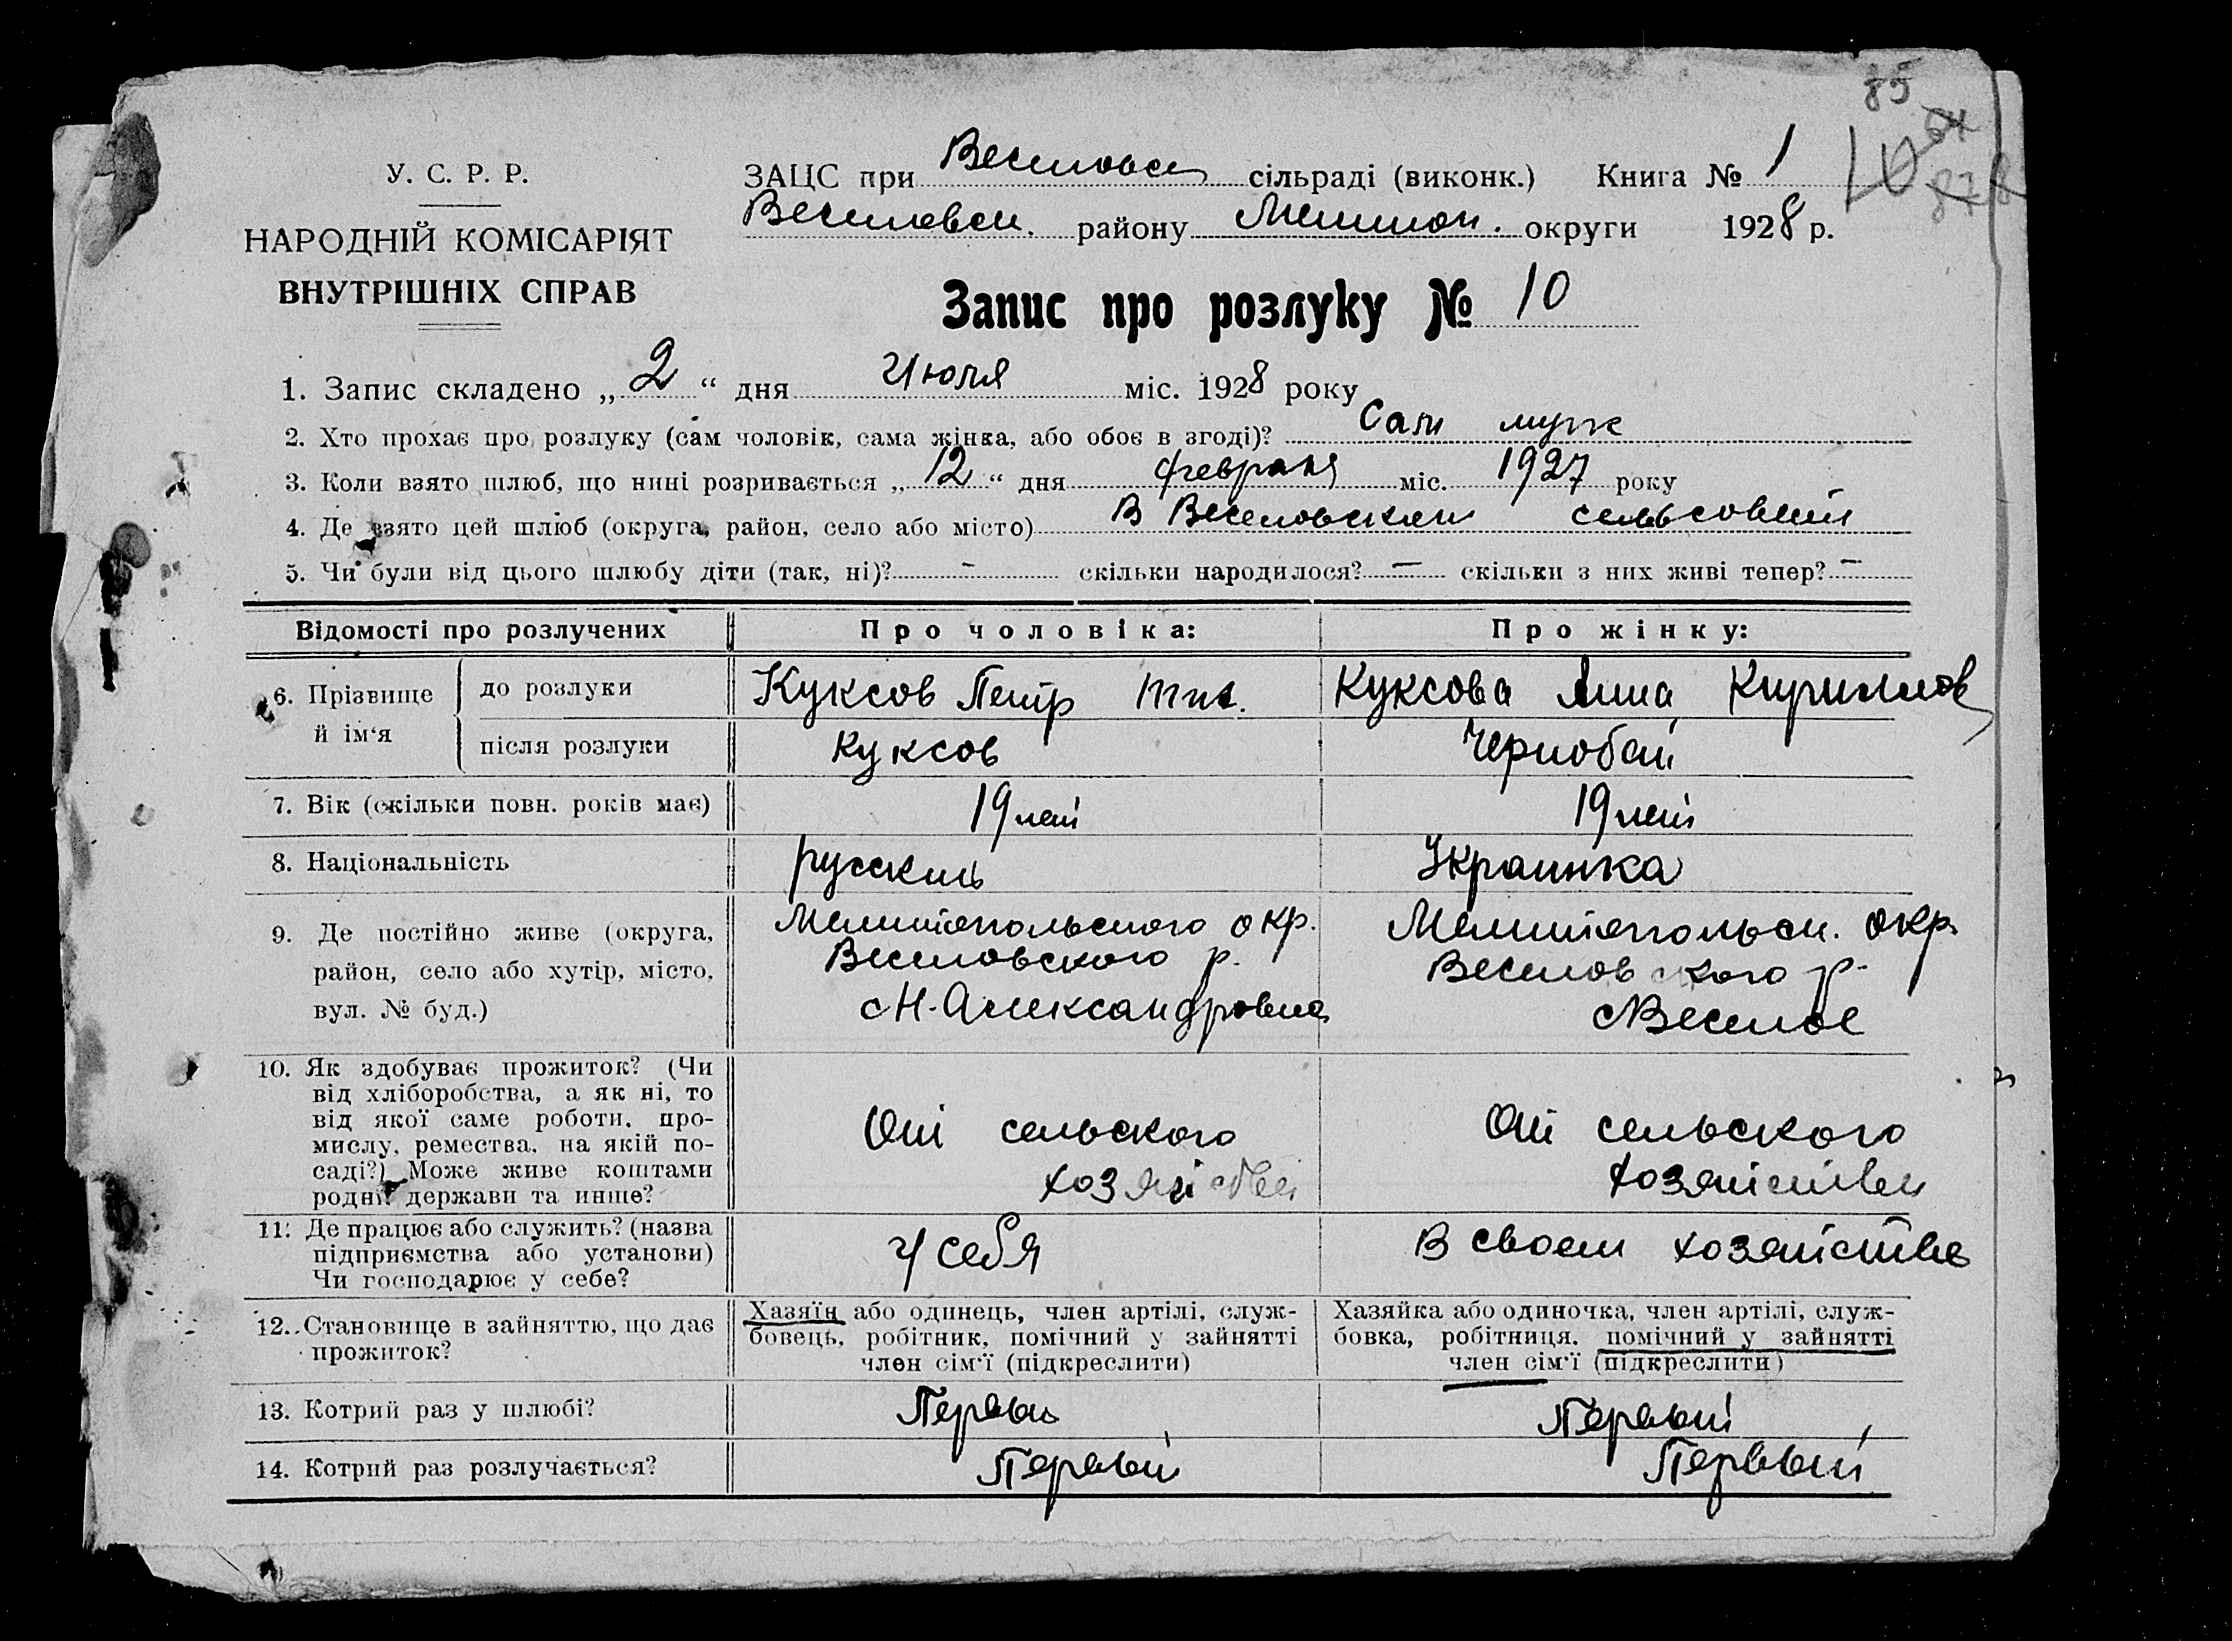 85
64
10
87 8
У. С. Р. Р.
НАРОДНІЙ КОМІСАРІЯТ
ВНУТРІШНІХ СПРАВ
ЗАЦС при Веселовск сільраді (виконк.) Книга № 1
Веселовск. району Мелитоп. округи 1928 р.
Запис про розлуку № 10
1. Запис складено „ 2 “ дня Июля міс. 1928 року
2. Хто прохає про розлуку (сам чоловік, сама жінка, або обоє в згоді)? Сам муж
3. Коли взято шлюб, що нині розривається „ 12 “ дня февраля міс. 1927 року
4. Де взято цей шлюб (округа, район, село або місто) В Веселовском сельсовет
5. Чи були від цього шлюбу діти (так, ні)? - скільки народилося? — скільки з них живі тепер? —
Відомості про розлучених
Про чоловіка:
Про жінку:
6. Прізвище й ім‘я
до розлуки
Куксов Петр
Куксова Анна Кирилов
після розлуки
Куксов
Чернобай
7. Вік (скільки повн. років має)
19 лет
19 лет
8. Національність
русский
Украинка
9. Де постійно живе (округа,
район, село або хутір, місто,
вул. № буд.)
Мелитопольского окр.
Веселовского р.
с Н-Александровка
Мелитопольск. окр.
Веселовского р-
с Веселое
10. Як здобуває прожиток? (Чи
від хліборобства, а як ні, то
від якої саме роботи, про-
мислу, ремества, на якій по-
саді?) Може живе коштами
родні держави та инше?
От сельского
хозяйства
От сельского
хозяйства
11. Де працює або служить? (назва
підприємства або установи)
Чи господарює у себе?
У себя
В своем хозяйстве
12. Становище в зайняттю, що дає
прожиток?
Хазяїн або одинець, член артілі, служ-
бовець, робітник, помічний у зайнятті
член сім‘ї (підкреслити)
Хазяйка або одиночка, член артілі, служ-
бовка, робітниця, помічний у зайнятті
член сім‘ї (підкреслити)
13. Котрий раз у шлюбі?
Первый
Первый
14. Котрий раз розлучається?
Первый
Первый